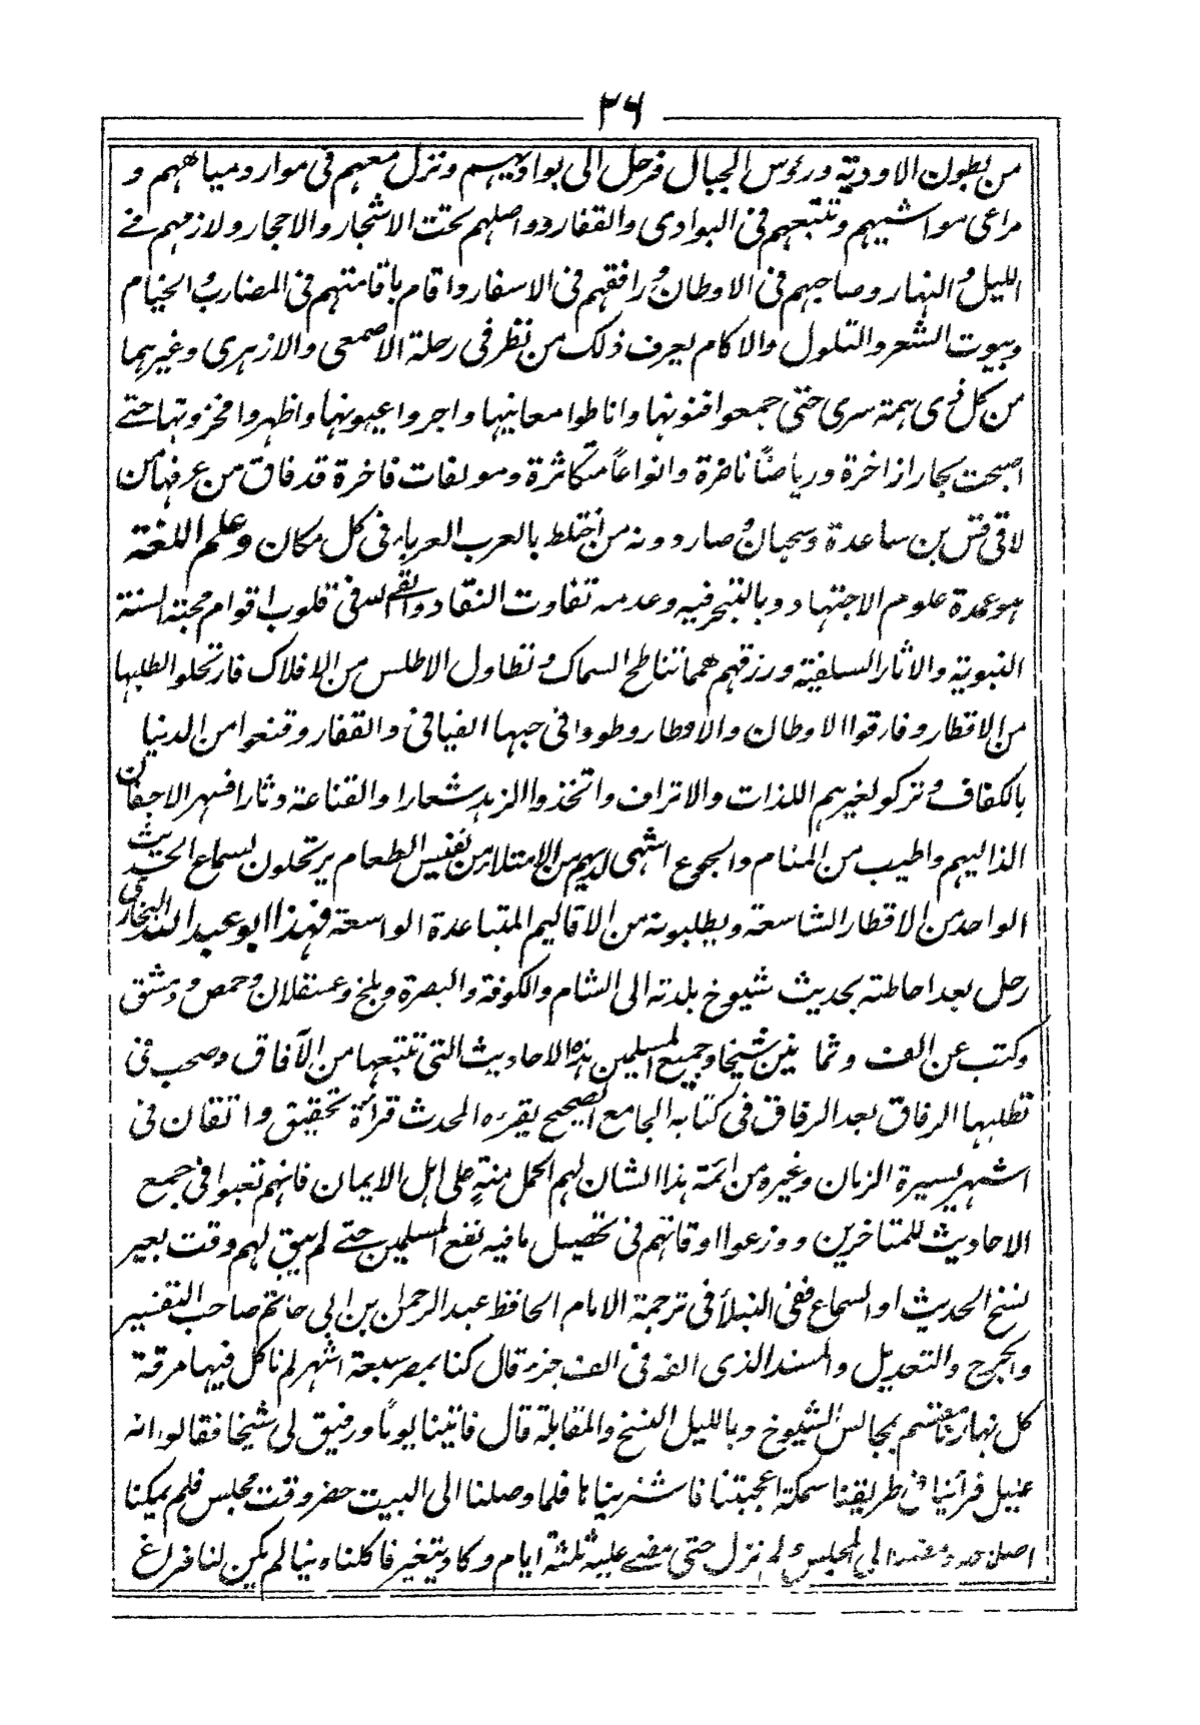 ٣٦
من بطون الاودية ورؤس الجبال فرحل الى بواديهم ونزل معهم فى موارد مياههم و
مراعى مواشيهم وتتبعهم فى البوادى والقفار وواصلهم تحت الاشجار والاحجار ولازمهم فے
الليل والنهار وصاحبهم فى الاوطان ورافقهم فى الاسفار واقام باقامتهم فى المضارب والخيام
وبيوت الشعر والتلول والاكام يعرف ذلك من نظر فى رحلة الاصمعى والازهرى وغيرهما
من كل ذى همة سرى حتى جمعوا فنونها واناطوا معانيها واجروا عيونها واظهروا مخزونها حتے
اصبحت بحارا زاخرة ورياضًا ناضرة وانواعاً متكاثرة ومولفات فاخرة قد فاق من عرفها من
لاقى قس بن ساعدة وسحبان وصار دونه من اختلط بالعرب العرباء فى كل مكان وعلم اللغة
هو عمدة علوم الاجتهاد وبالتبحر فيه وعدمه تفاوت النقاد والقى الله فى قلوب اقوام محبة السنة
النبوية والاثار السلفية ورزقهم همما تناطح السماك وتطاول الاطلس من الافلاك فارتحلوا لطلبها
من الاقطار وفارقوا الاوطان والاوطار وطووا فى حبها الفيافى والقفار وقنعوا من الدنيا
بالكفاف وتركو لغيرهم اللذات والاتراف واتخذوا الزهد شعارا والقناعة دثارا فسهر الاجفان
الذ اليهم واطيب من المنام والجوع اشهى لديهم من الامتلاء من نفيس الطعام يرتحلون لسماع الحديث
الواحد من الاقطار الشاسعة ويطلبونه من الاقاليم المتباعدة الواسعة فهذا ابو عبد الله البخارى
رحل بعد احاطته بحديث شيوخ بلدته الى الشام والكوفة والبصرة وبلخ وعسقلان وحمص ودمشق
وكتب عن الف وثمانين شيخا وجميع المسلمين هذه الاحاديث التى تتبعها من الآفاق وصحب فى
تطلبها الرفاق بعد الرفاق فى كتابه الجامع الصحيح يقرءه المحدث قرائة تحقيق واتقان فى
اشهر يسيرة الزمان وغيره من ائمة هذا الشان لهم اكمل منة على اهل الايمان فانهم تعبوا فى جمع
الاحاديث للمتاخرين ووزعوا اوقاتهم فى تحصيل ما فيه نفع المسلمين حتے لم يبق لهم وقت بغير
نسخ الحديث او السماع ففى النبلاء فى ترجمة الامام الحافظ عبد الرحمن بن ابى حاتم صاحب التفسير
والجرح والتعديل والمسند الذى الفه فى الف جزء قال كنا بمصر سبعة اشهر لم ناكل فيها مرقة
كل نهارنا نقسم بمجالس الشيوخ وبالليل النسخ والمقابلة قال فاتينا يومًا ورفيق لى شيخا فقالوا انه
عليل فرأينا فى طريقنا سمكة اعجبتنا فاشتريناها فلما وصلنا الى البيت حضر وقت مجلس فلم يمكنا
اصلاحه ومضينا الى المجلس ولم نزل حتى مضے عليه ثلثة ايام وكاد يتغير فاكلناه نيا لم يكن لنا فراغ